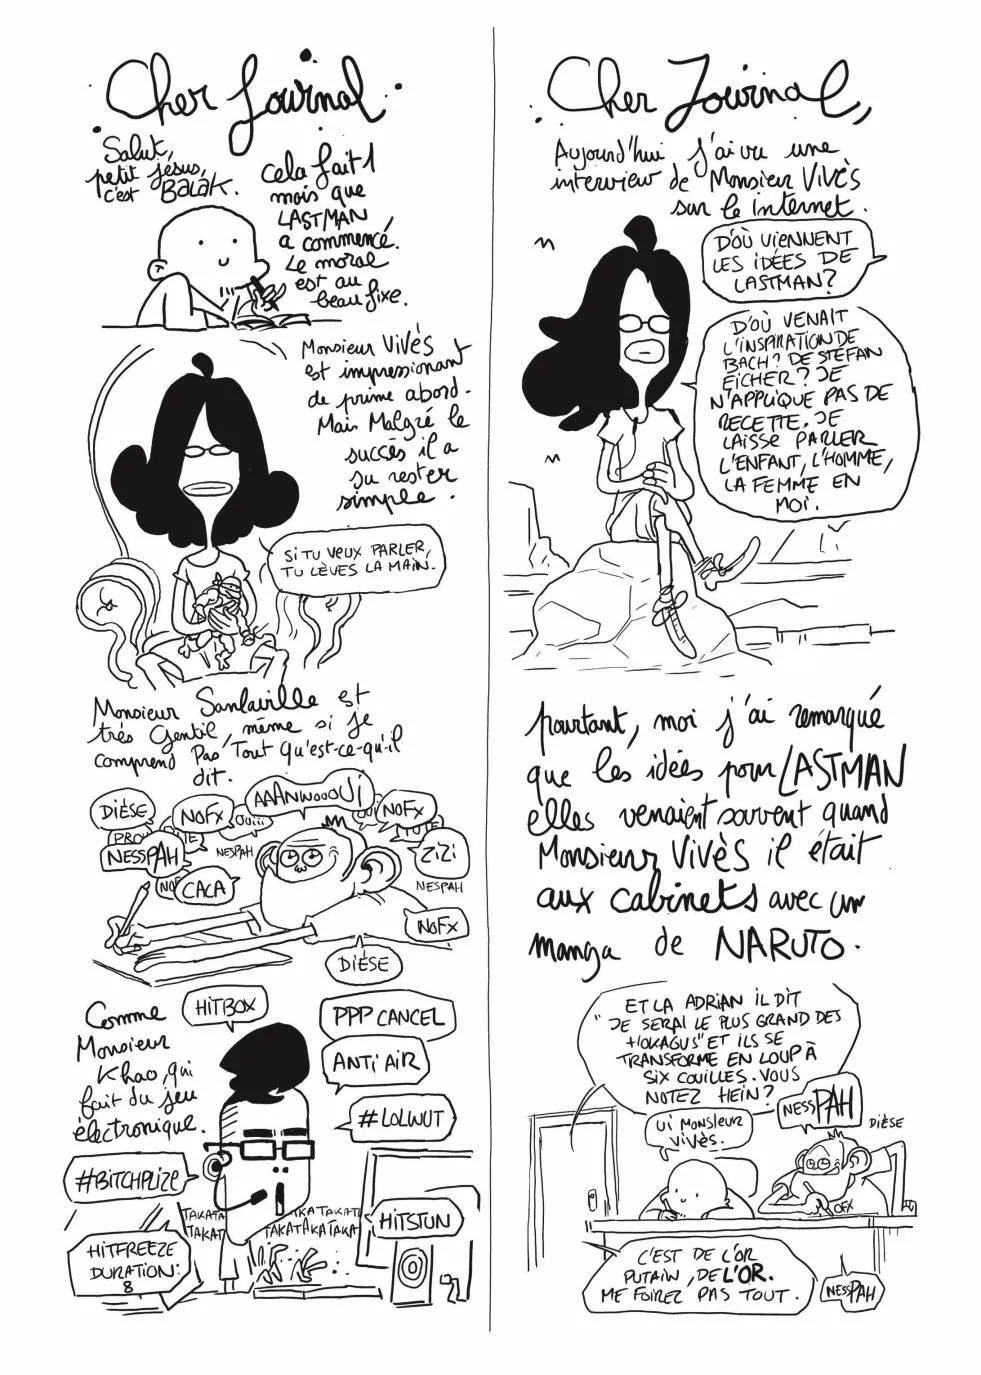 Cher Journal
Salut,
petit Jésus,
c'est BALAK.
Cela fait 1
mois que
LASTMAN
a commencé.
Le moral
est au
beau fixe.
Monsieur Vivès
est impressionnant
de prime abord.
Mais Malgré le
succès il a
su rester
simple.
SI TU VEUX PARLER,
TU LÈVES LA MAIN.
Monsieur Sanlaville est
très Gentil, même si je
comprend Pas Tout Qu'est-ce-qu'il
dit.
DIÈSE
NOFX
OUiii
AAANWOOOUi
NOFX
NESSPAH
NESPAH
ZiZi
NESPAH
CACA
NOFX
DIÈSE
Comme
Monsieur
Khao, qui
fait du jeu
électronique.
HITBOX
PPP CANCEL
ANTI AIR
#LOLWUT
#BITCHPLIZE
TAKATA
TAKAT
TAKATAKATAKA
HITSTUN
HITFREEZE
DURATION:
8
Cher Journal,
Aujourd'hui j'ai vu une
interview de Monsieur Vivès
sur le internet.
D'OÙ VIENNENT
LES IDÉES DE
LASTMAN?
D'OÙ VENAIT
L'INSPIRATION DE
BACH? DE STEFAN
EICHER? JE
N'APPLIQUE PAS DE
RECETTE. JE
LAISSE PARLER
L'ENFANT, L'HOMME,
LA FEMME EN
MOI.
pourtant, moi j'ai remarqué
que les idées pour LASTMAN
elles venaient souvent quand
Monsieur Vivès il était
aux cabinets avec un
manga de NARUTO.
ET LA ADRIAN IL DIT
"JE SERAI LE PLUS GRAND DES
HOKAGUS" ET ILS SE
TRANSFORME EN LOUP À
SIX COUILLES. VOUS
NOTEZ HEIN?
Ui MONSIEUR
VIVÈS.
NESSPAH
DIÈSE
OFX
C'EST DE L'OR
PUTAIN, DE L'OR.
ME FOIREZ PAS TOUT.
NESSPAH